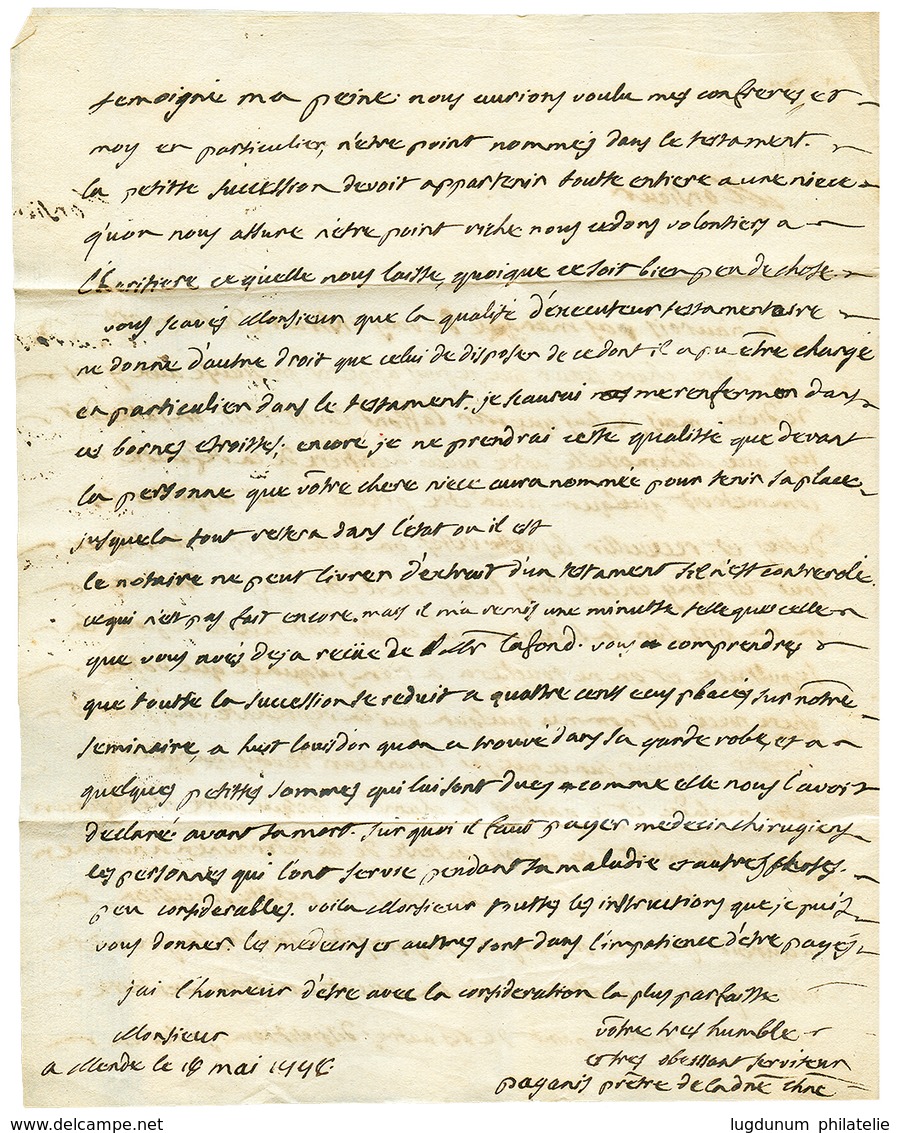 temoigné ma peine. nous aurions voulu mes confreres, et
moy en particulier, n'etre point nommés dans le testament.
la petitte succession devoit appartenir toutte entiere a une niece
qu'on nous assure n'etre point riche nous cedons volontiers a
l'heritiere ce qu'elle nous laisse, quoique ce soit bien peu de chose.
vous scavés Monsieur que la qualité d'executeur testamentaire
ne donne d'autre droit que celui de disposer de ce dont il a pu etre chargé
en particulier dans le testament. je scaurai me renfermer dans
ces bornes etroittes; encore je ne prendrai cette qualitté que devant
la personne que vôtre chere niece aura nommée pour tenir sa place,
jusquela tout restera dans l'etat ou il est
le notaire ne peut livrer d'extrait d'un testament s'il n'est controlé.
ce qui n'est pas fait encore. mais il m'a remis une minutte telle que celle
que vous avés deja reciie de lafond. vous comprendres
que toutte la succession se reduit a quattre cents ecus placés sur nôtre
seminaire, a huit louisdor quon a trouvé dans sa garde robe, et a
quelques petittes sommes qui lui sont dues comme elle nous l'avoit
declaré avant sa mort. sur quoi il faut payer medecin chirugiens
les personnes qui l'ont servie pendant sa maladie et autres choses.
peu considerables. voila Monsieur touttes les instructions que je puis
vous donner. les medecins et auttres sont dans l'impatience d'etre payés
jai l'honneur d'etre avec la consideration la plus parfaitte
Monsieur
vôtre tres humble
et tres obeissant serviteur
a Mende le 18 mai
paganis prêtre de la
www.delcampe.net
lugdunum philatelie